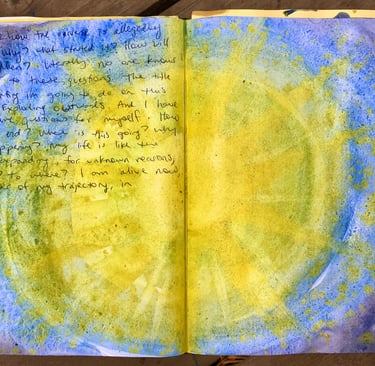 how the universe is allegedly
why? what started it? How will
literally. no one knows
to these questions. The title
why I'm going to do on this
exploding outwards. And I have
questions for myself. How
end? Where is this going? Why
happening? My life is like the
expanding, for unknown reasons,
to where? I am alive now
of my trajectory, in